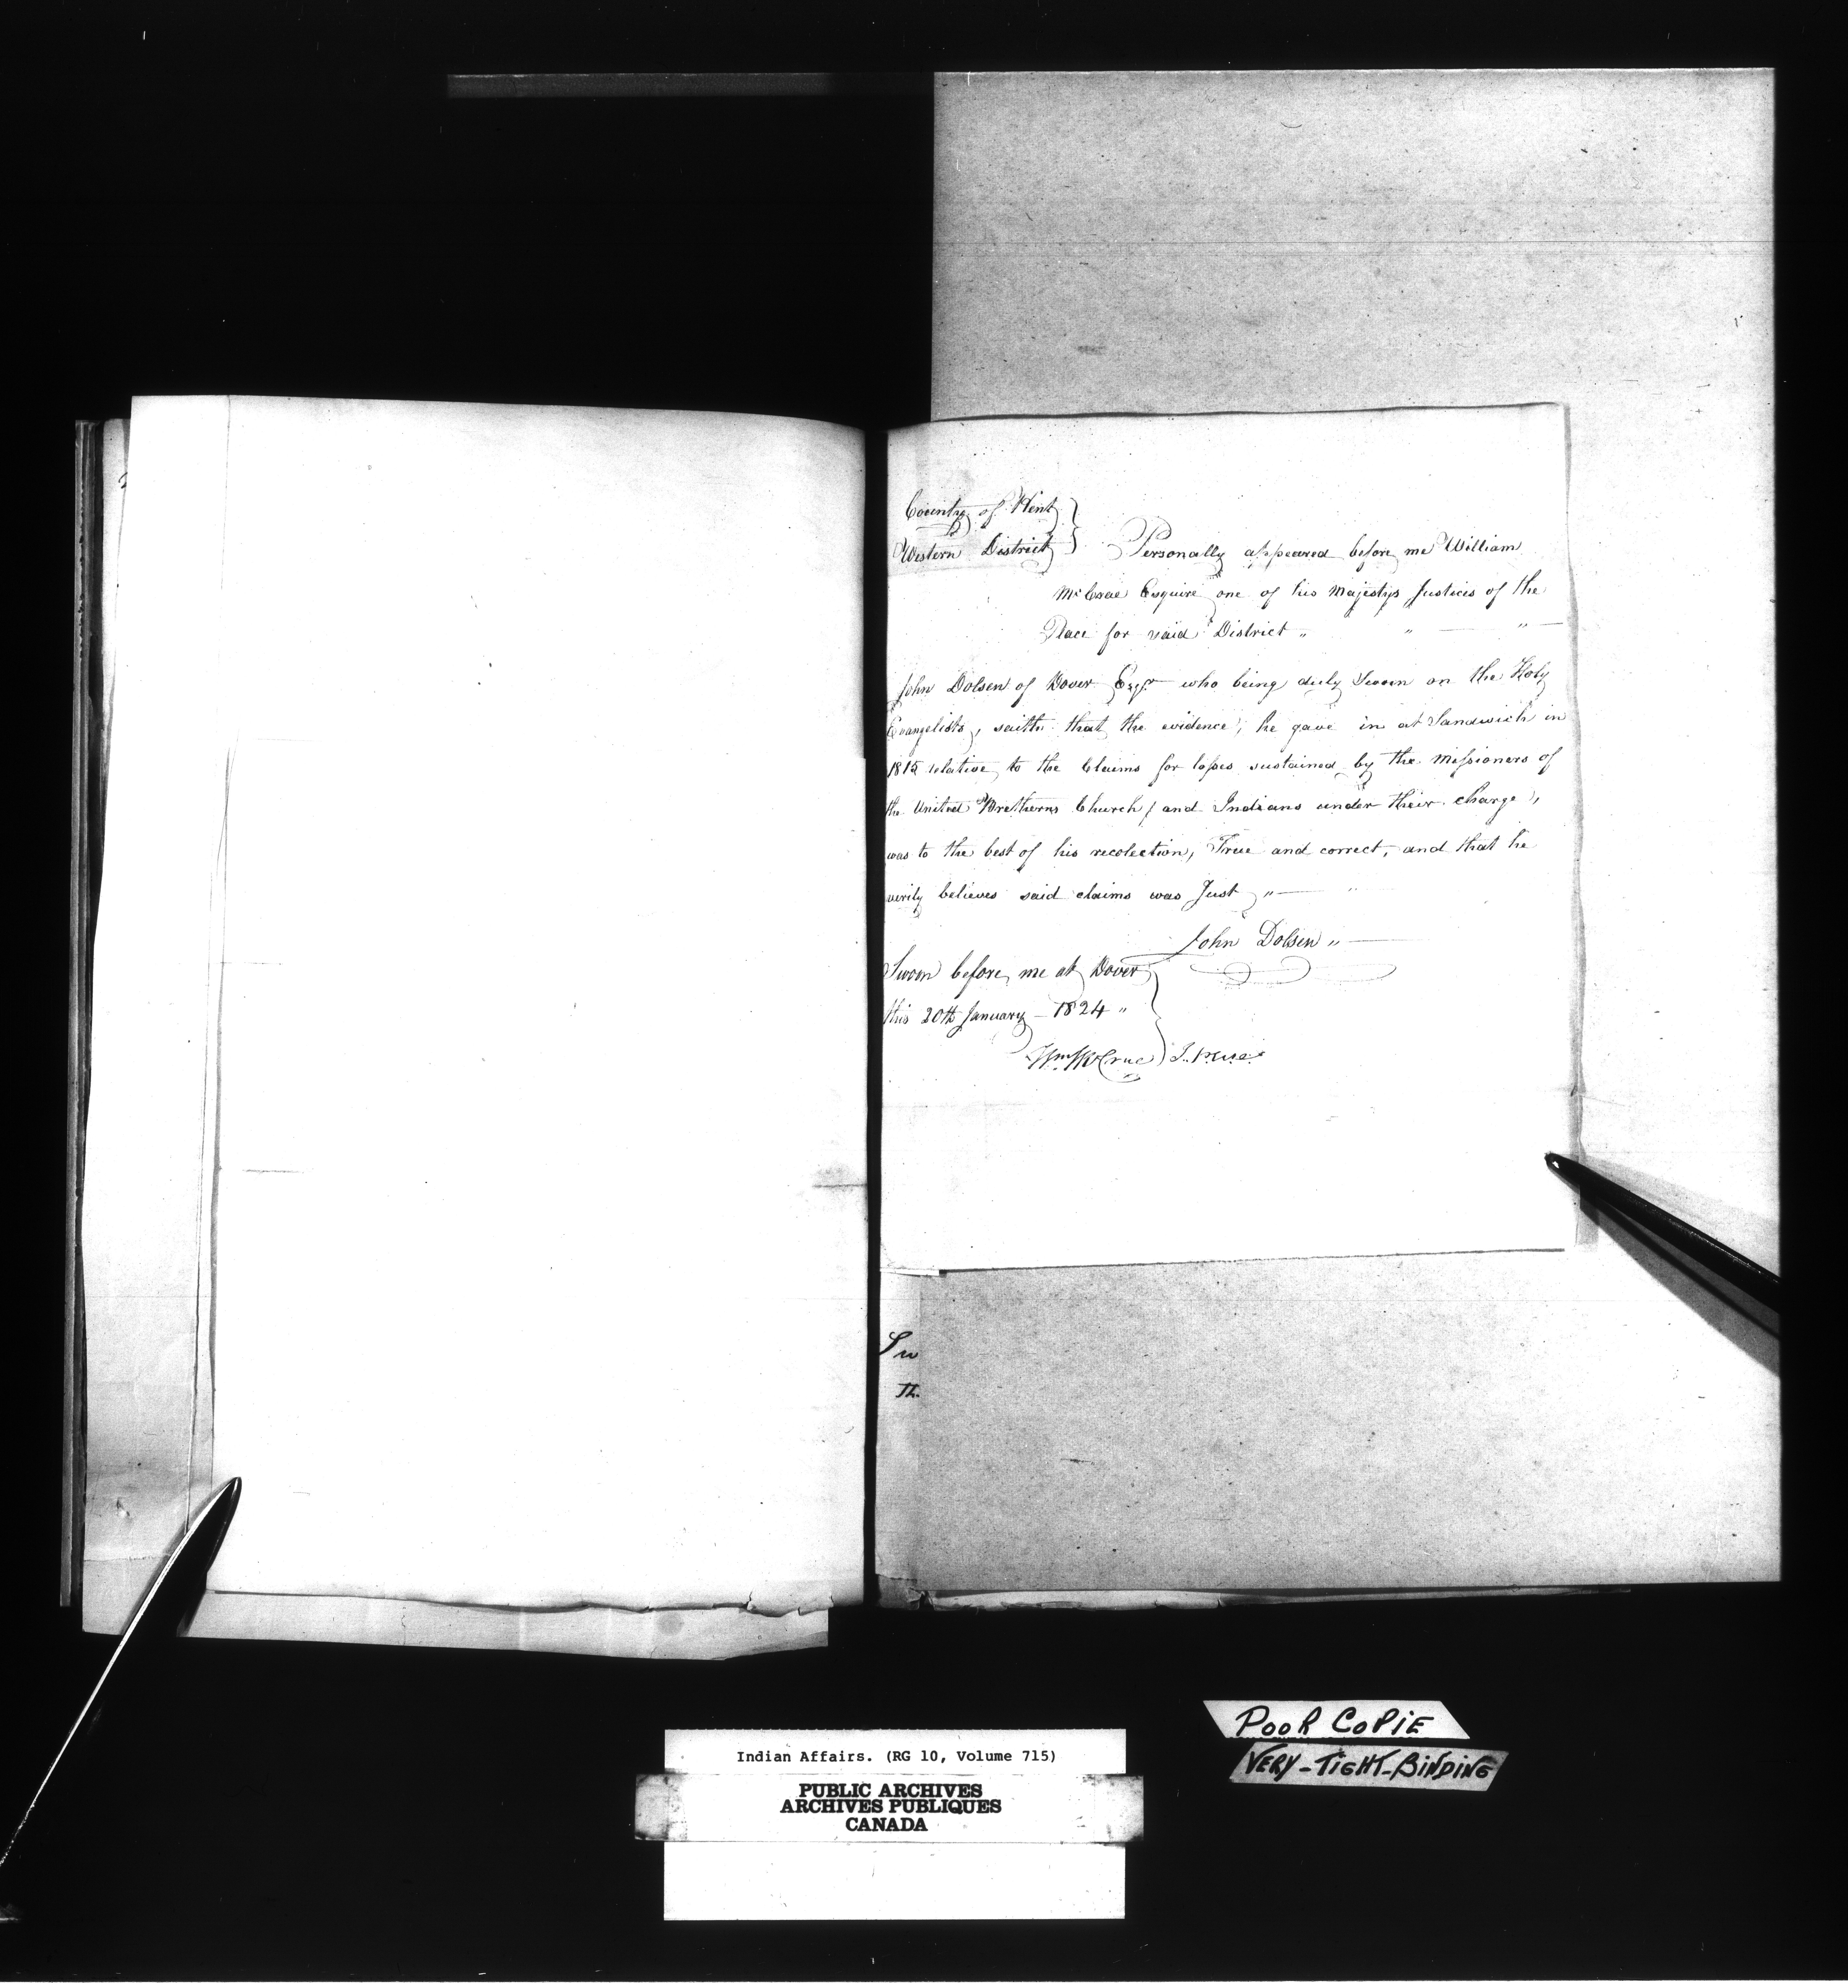 County of Kent
Western District } Personally appeared before me William
McCrae Esquire one of his Majestys Justices of the
Peace for said District „ „ — „ —
John Dolsen of Dover Esqr who being duly Sworn on the Holy
Evangelists, saith that the evidence, he gave in at Sandwich in
1815 relative to the Claims for losses sustained by the Missioners of
the United Bretherns Church / and Indians under their charge),
was to the best of his recolection, True and correct, and that he
verily believes said claims was Just „ — „
John Dolsen „ —
Sworn before me at Dover
this 20th January – 1824 „
Wm McCrae
Sw
Th
POOR COPIE
VERY-TIGHT-BINDING
Indian Affairs. (RG 10, Volume 715)
PUBLIC ARCHIVES
ARCHIVES PUBLIQUES
CANADA